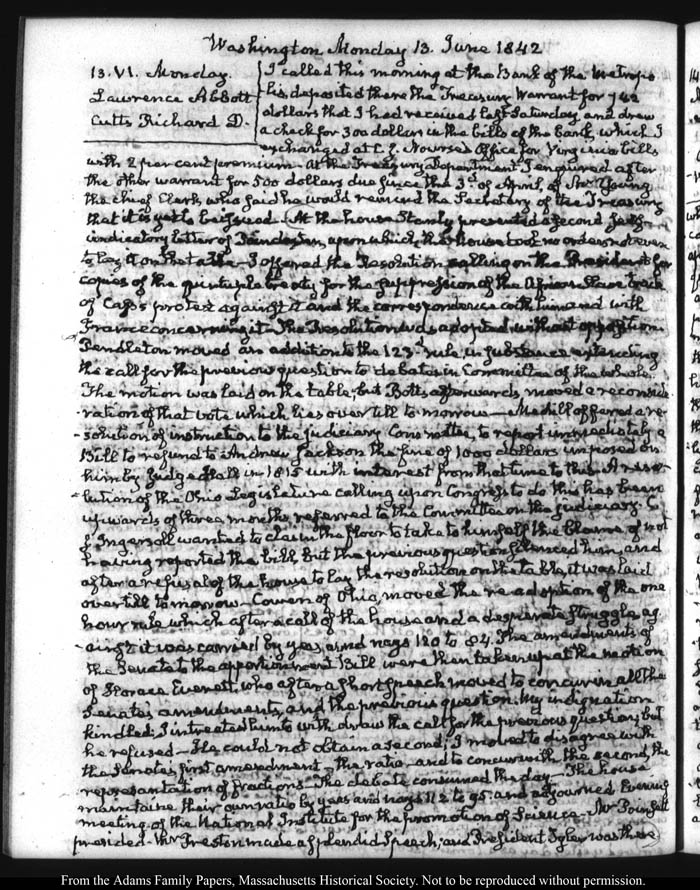 Washington Monday 13. June 1842
13. VI. Monday.
Lawrence Abbott
Cutts Richard D.
I called this morning at the Bank of the Metropo-
lis, deposited there the Treasury Warrant for 742
dollars that I had received last Saturday and drew
a check for 300 dollars in the bills of the bank, which I
exchanged at C. J. Nourse's Office for Virginia bills
with 2 per cent premium. At the Treasury Department I enquired after
the other warrant for 500 dollars due since the 3d. of April, of Mr Young
the chief Clerk, who said he would remind the Secretary of the Treasury
that it is yet to be issued. At the house Stanly presented a second self
vindicatory letter of Poindexter, upon which the house took no order, not even
to lay it on the table. I offered the Resolution calling on the President for
copies of the quintuple treaty for the suppression of the African Slave trade
of Cass's protest against it and the correspondence with him and with
France concerning it. The Resolution was adopted without opposition.
Pendleton moved an addition to the 123d. rule in substance extending
the call for the previous question to debates in Committee of the whole.
The motion was laid on the table, but Botts afterwards moved a reconside
-ration of that vote which lies over till to-morrow — Medill offered a re-
-solution of instruction to the judiciary Committee, to report immediately a
Bill to refund to Andrew Jackson the fine of 1000 dollars imposed on
him by Judge Hall in 1815 with interest from that time to this. A reso-
-lution of the Ohio Legislature calling upon Congress to do this has been
upwards of three months referred to the Committee on the judiciary. C.
J. Ingersoll wanted to claim the floor to take to himself the blame of not
having reported the bill, but the previous question silenced him, and
after a refusal of the house to lay the resolution on the table, it was laid
over till to-morrow — Cowen of Ohio, moved the re-adoption of the one
hour rule which after a call of the house and a desperate struggle ag-
-ainst it was carried by yeas and nays 120 to 84. The amendments of
the Senate to the apportionment Bill were then taken up at the motion
of Horace Everett, who after a short speech moved to concur in all the
Senate's amendments, and the previous question. My indignation
kindled; I intreated him to withdraw the call for the previous question; but
he refused — He could not obtain a second; I moved to disagree with
the Senate's first amendment — the ratio, and to concur with the second, the
representation of fractions — The debate consumed the day — The house
maintained their own ratio by yeas and nays 112 to 95 and adjourned Evening
meeting of the National Institute for the promotion of Science — Mr Poinsett
presided — Mr Preston made a splendid Speech; and President Tyler was there
From the Adams Family Papers, Massachusetts Historical Society. Not to be reproduced without permission.